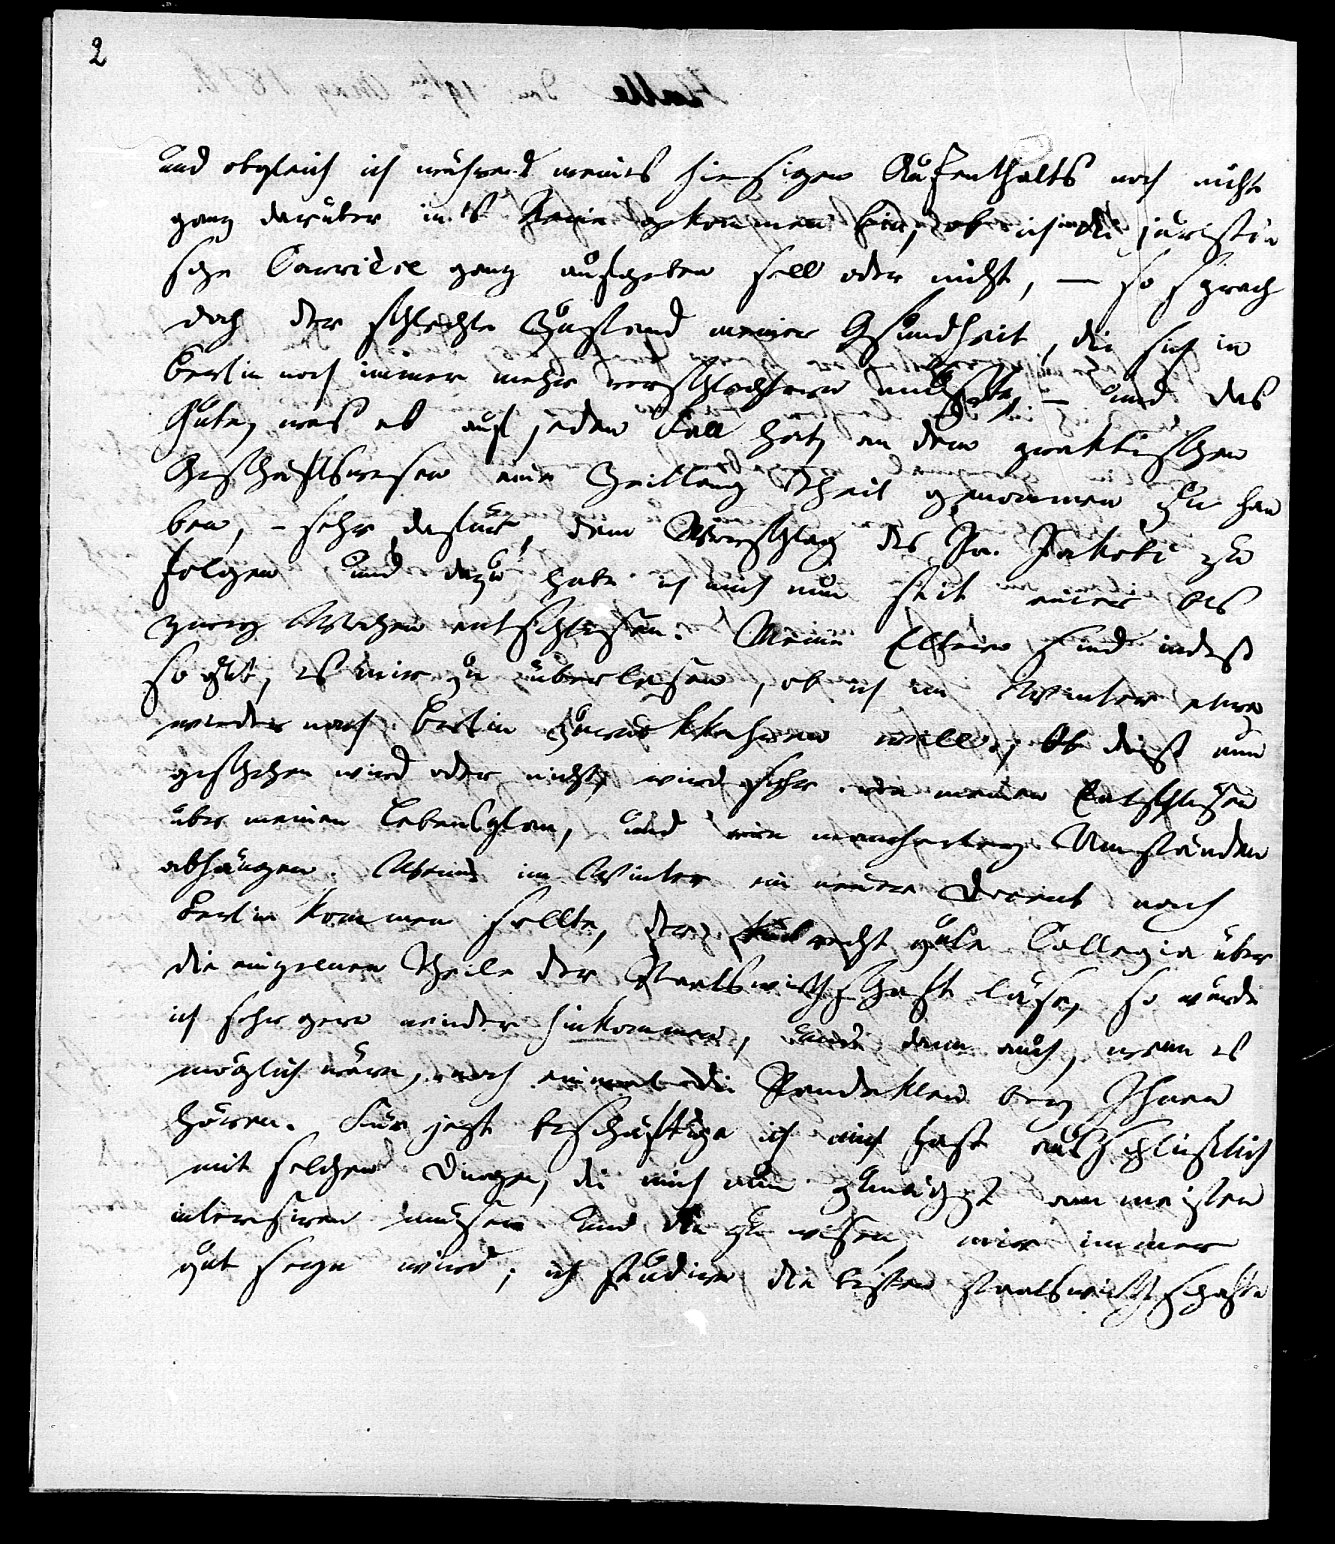 2
und obgleich ich während meines hiesigen Aufenthalts noch nicht
ganz darüber in's Reine gekommen bin, ob ich die juristi
sche Carriere ganz aufgeben soll oder nicht, — so sprach
doch der schlechte Zustand meiner Gesundheit, die sich in
Berlin noch immer mehr verschlechtern mußte, — und das
Gute, was es auf jeden Fall hat, an dem praktischen
Geschäftswesen eine Zeitlang Theil genommen zu ha
ben, – sehr dafür, dem Vorschlag des Pr. Jakobi zu
folgen und dazu habe ich mich nun seit einer bis
zwey Wochen entschlossen. Meine Eltern sind indeß
so gut, es mir zu überlassen, ob ich im Winter etwa
wieder nach Berlin zurückkehren will; Ob dieß nun
geschehen wird oder nicht, wird sehr von meinen Entschlüssen
über meinen Lebensplan, und von mancherley Umständen
abhängen. Wenn im Winter ein neuer Docent nach
Berlin kommen sollte, der recht gute Collegia über
die einzelnen Theile der Staatswirthschaft läse, so würde
ich sehr gern wieder hinkommen, und dann auch, wenn es
möglich wäre, noch einmal die Pandekten bey Ihnen
hören. Für jetzt beschäftige ich mich fast ausschließlich
mit solchen Dingen, die mich nun zunächst am meisten
interessiren müssen und die zu wissen, mir immer
gut seyn wird; ich studire die besten staatswirthschaftli